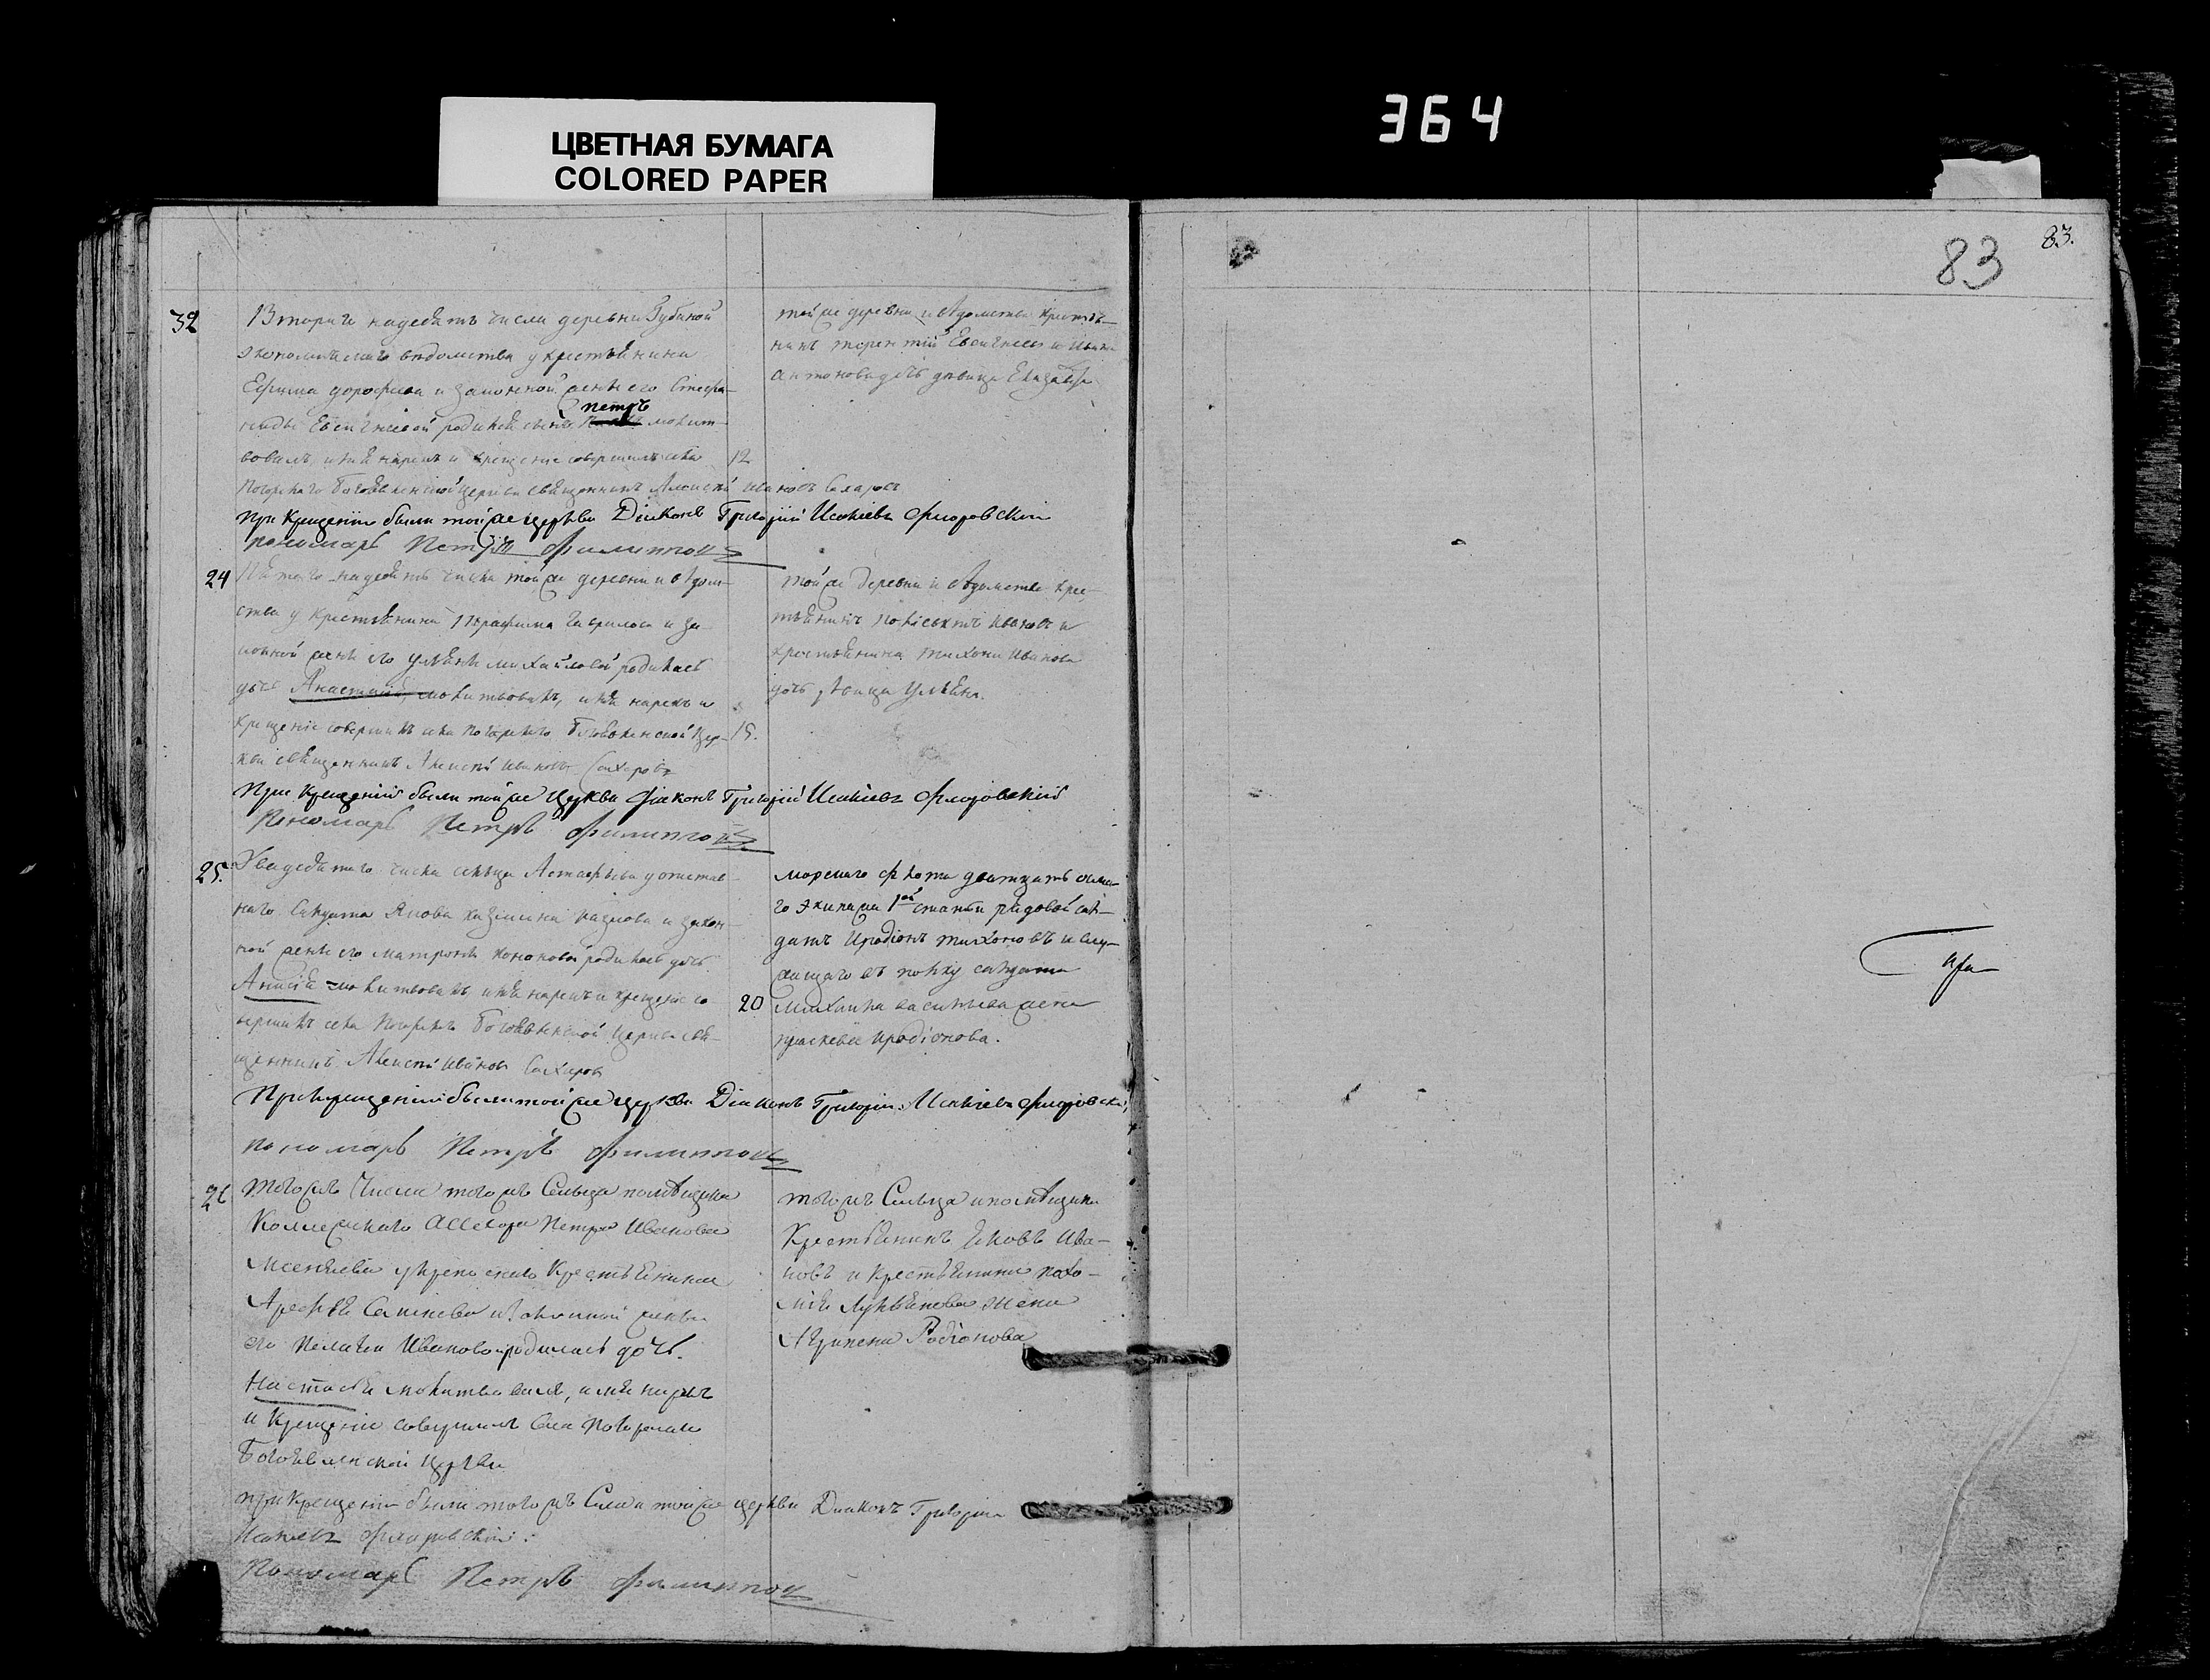 ЦВЕТНАЯ БУМАГА
COLORED PAPER
364
83
83.
32
Второго надесять числа деревни Зубиной
экономическаго ведомства у крестьянина
Ефима дорофеева и законной жены его Стефа-
петръ
ниды родился сынъ молит-
вовалъ, имя нарекъ и крещение совершилъ села
12
Погорелаго Богоявленской церкви священникъ Алексей Ивановъ Сахаровъ
той же деревни и ведомства крестья-
нинъ терентий Евсигнеевъ и Ивана
антонова дочь девица Елизавета
При Крещении были той же церкви Дияконъ Григорий Исакиевъ Флоровский
пономарь Петръ Филипповъ
24
Пятаго надесять числа той же деревни и ведом-
ства у крестьянина Гаврилова и за-
конной жены его ульяны михайловой родилась
дочь Анастасия, молитвовалъ, имя нарекъ и
крещение совершилъ села погорелаго Богоявленской цер-
15.
кви священникъ Алексей Ивановъ Сахаровъ
той же деревни и ведомства кре-
стьянинъ Ивановъ и
крестьянина тихона Иванова
дочь девица Ульяна.
При Крещении были той же Церкви Дияконъ Григорий Исакиевъ Флоровский
Пономарь Петръ Филипповъ
25.
Двадесятаго числа сельца Астафьева у отстав-
наго Салдата Якова и закон-
ной жены его матроны кононовой родилась дочь
Анисия молитвовалъ имя нарекъ и крещение со-
вершилъ села Погорелаго Богоявленской Церкви свя-
щенникъ Алексей Ивановъ Сахаровъ
20
морскаго флота дватцать
го экипажа 1ой статьи рядовой сал-
датъ Иродионъ тихоновъ и слу-
жащаго въ полку салдата
Михаила васильева жена
праскевья иродионова.
При крещении были той же церкви Дияконъ Григорий Исакиевъ Флоровский
пономарь Петръ Филипповъ
26
Тогожъ Числа тогожъ Сельца помещика
Коллежскаго Ассесора Петра Иванова
у крепоснаго Крестьянина
Арефья и законной жены
его Пелагеи Ивановой родилась дочь.
Настасья молитвовалъ, имя нарекъ
и Крещение совершилъ Села Погорелаго
Богоявленской Церкви
тогожъ Сельца и помещика
Крестьянинъ Яковъ Ива-
новъ и Крестьянина пахо-
мия Лукьянова жена
Агрипена Родионова
при Крещении были тогожъ Села и той же церкви Дияконъ Григорий
Исакиевъ Флоровский.
Пономарь Петръ Филипповъ